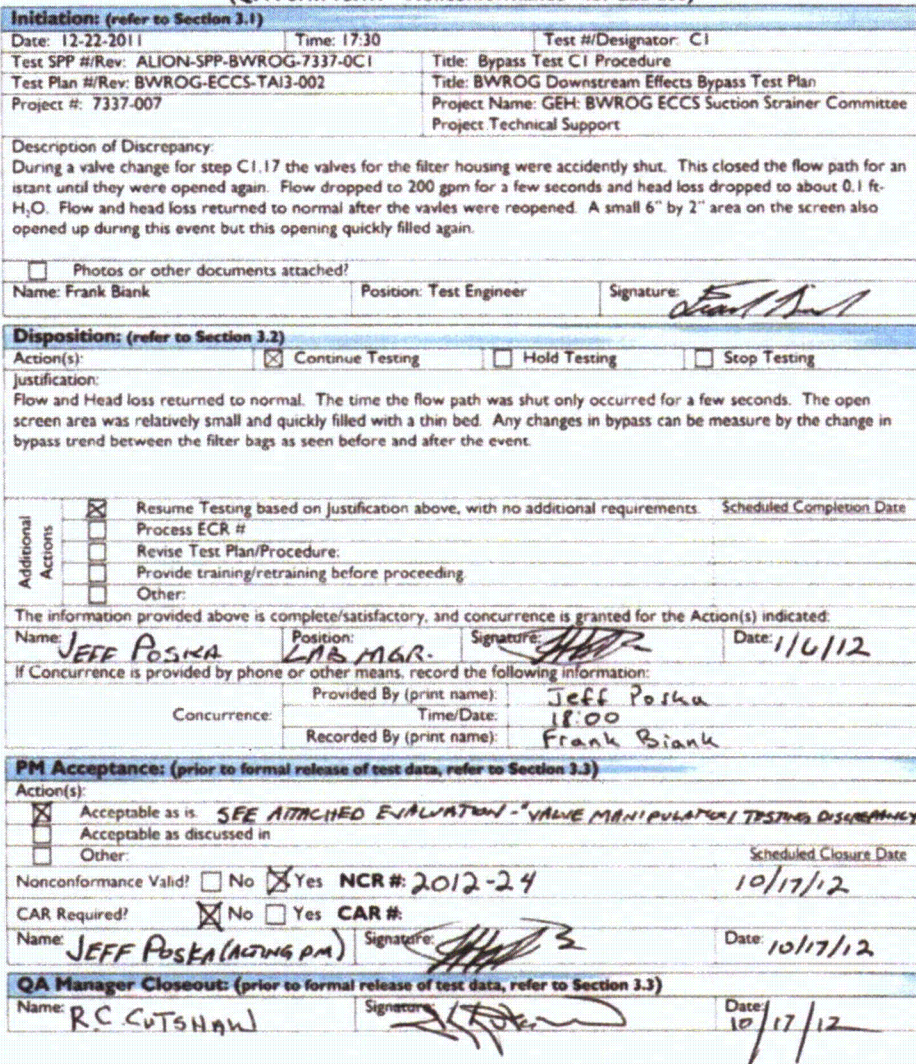 Initiation: (refer to Section 3.1)
Date: 12-22-2011 Time: 17:30 Test #/Designator: C1
Test SPP #/Rev: ALION-SPP-BWROG-7337-0C1 Title: Bypass Test C1 Procedure
Test Plan #/Rev: BWROG-ECCS-TAI3-002 Title: BWROG Downstream Effects Bypass Test Plan
Project #: 7337-007 Project Name: GEH: BWROG ECCS Suction Strainer Committee
Project Technical Support
Description of Discrepancy:
During a valve change for step C1.17 the valves for the filter housing were accidently shut. This closed the flow path for an
istant until they were opened again. Flow dropped to 200 gpm for a few seconds and head loss dropped to about 0.1 ft-
H2O. Flow and head loss returned to normal after the vavles were reopened. A small 6" by 2" area on the screen also
opened up during this event but this opening quickly filled again.
Photos or other documents attached?
Name: Frank Biank Position: Test Engineer Signature:
Disposition: (refer to Section 3.2)
Action(s): ☒ Continue Testing ☐ Hold Testing ☐ Stop Testing
Justification:
Flow and Head loss returned to normal. The time the flow path was shut only occurred for a few seconds. The open
screen area was relatively small and quickly filled with a thin bed. Any changes in bypass can be measure by the change in
bypass trend between the filter bags as seen before and after the event.
Additional Actions
☒ Resume Testing based on Justification above, with no additional requirements. Scheduled Completion Date
☐ Process ECR #
☐ Revise Test Plan/Procedure:
☐ Provide training/retraining before proceeding
☐ Other:
The information provided above is complete/satisfactory, and concurrence is granted for the Action(s) indicated:
Name: JEFF POSKA Position: LAB MGR. Signature: Date: 1/6/12
If Concurrence is provided by phone or other means, record the following information:
Concurrence: Provided By (print name): Jeff Poska
Time/Date: 18:00
Recorded By (print name): Frank Biank
PM Acceptance: (prior to formal release of test data, refer to Section 3.3)
Action(s):
☒ Acceptable as is. SEE ATTACHED EVALUATION - "VALVE MANIPULATION TESTING DISCREPANCY
☐ Acceptable as discussed in
☐ Other: Scheduled Closure Date
Nonconformance Valid? ☐ No ☒ Yes NCR #: 2012-24 10/17/12
CAR Required? ☒ No ☐ Yes CAR #:
Name: JEFF POSKA (ACTING PM) Signature: Date: 10/17/12
QA Manager Closeout: (prior to formal release of test data, refer to Section 3.3)
Name: R.C. CUTSHAW Signature: Date: 10/17/12